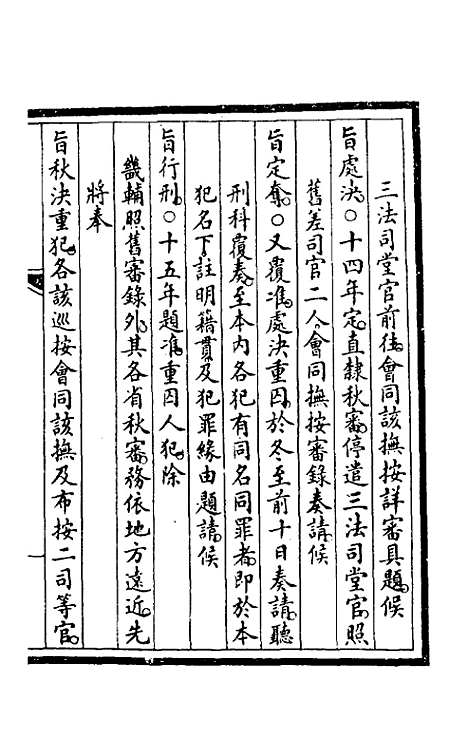 三法司堂官前往會同該撫按詳審具題候
旨處決○十四年定直隸秋審停遣三法司堂官照
舊差司官二人會同撫按審錄奏請候
旨定奪○又覆准處決重囚於冬至前十日奏請聽
刑科覆奏至本內各犯有同名同罪者即於本
犯名下註明籍貫及犯罪緣由題請候
旨行刑○十五年題准重囚人犯除
畿輔照舊審錄外其各省秋審務依地方遠近先
將奉
旨秋決重犯各該巡按會同該撫及布按二司等官